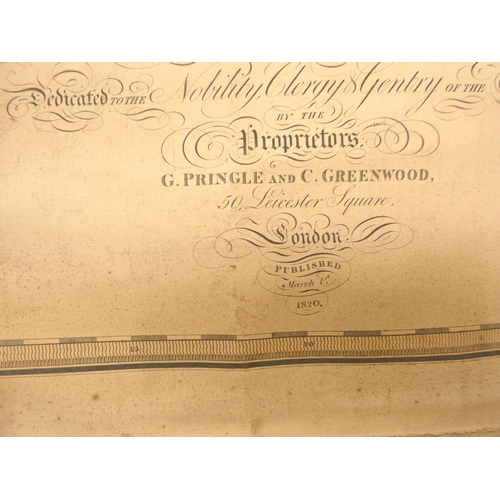 Dedicated TO THE Nobility, Clergy & Gentry OF THE
BY THE
Proprietors,
G. PRINGLE AND C. GREENWOOD,
50, Leicester Square,
London.
PUBLISHED
March 1st
1820.
15 10 5